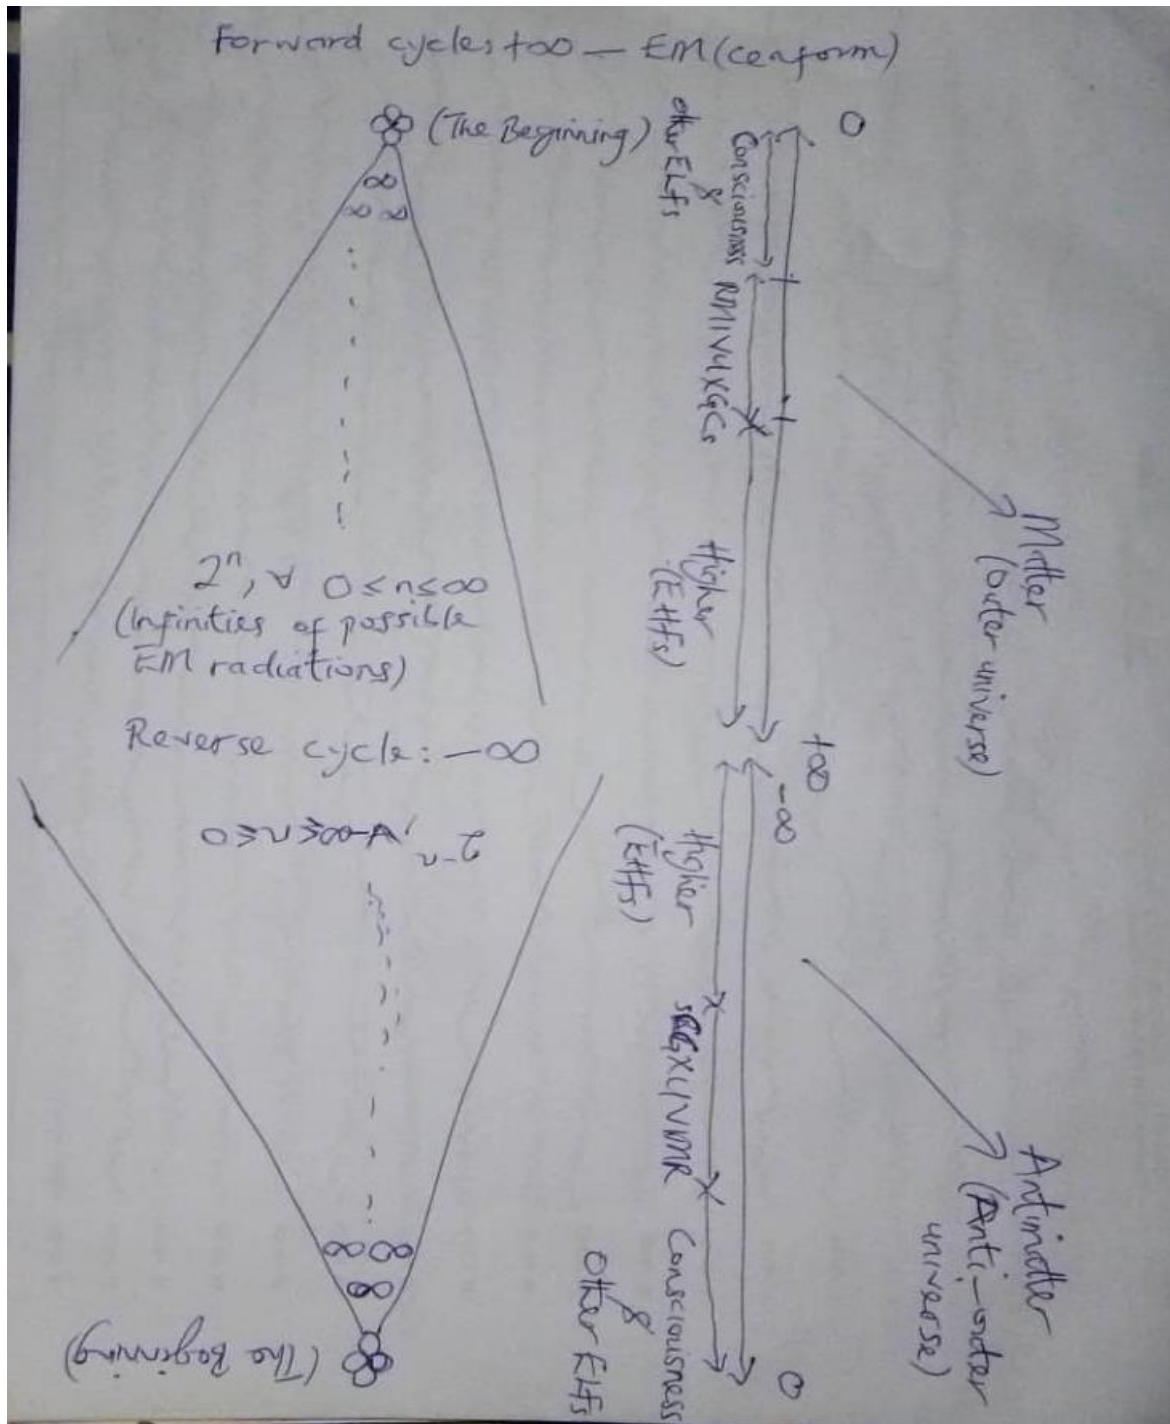 Forward cycles +∞ — EM (conform)
(The Beginning)
∞
∞ ∞
2ⁿ, ∀ 0 ≤ n ≤ ∞
(Infinities of possible
EM radiations)
Reverse cycle: -∞
2⁻ⁿ, ∀ -∞ ≤ n ≤ 0
∞ ∞
∞
(The Beginning)
0
Consciousness
&
other ELFs
RMIVUXGCs
Higher
(EHFs)
+∞
Matter
(outer universe)
-∞
Higher
(EHFs)
sCGXUVIMR
Consciousness
&
Other ELFs
0
Antimatter
(Anti-outer
universe)